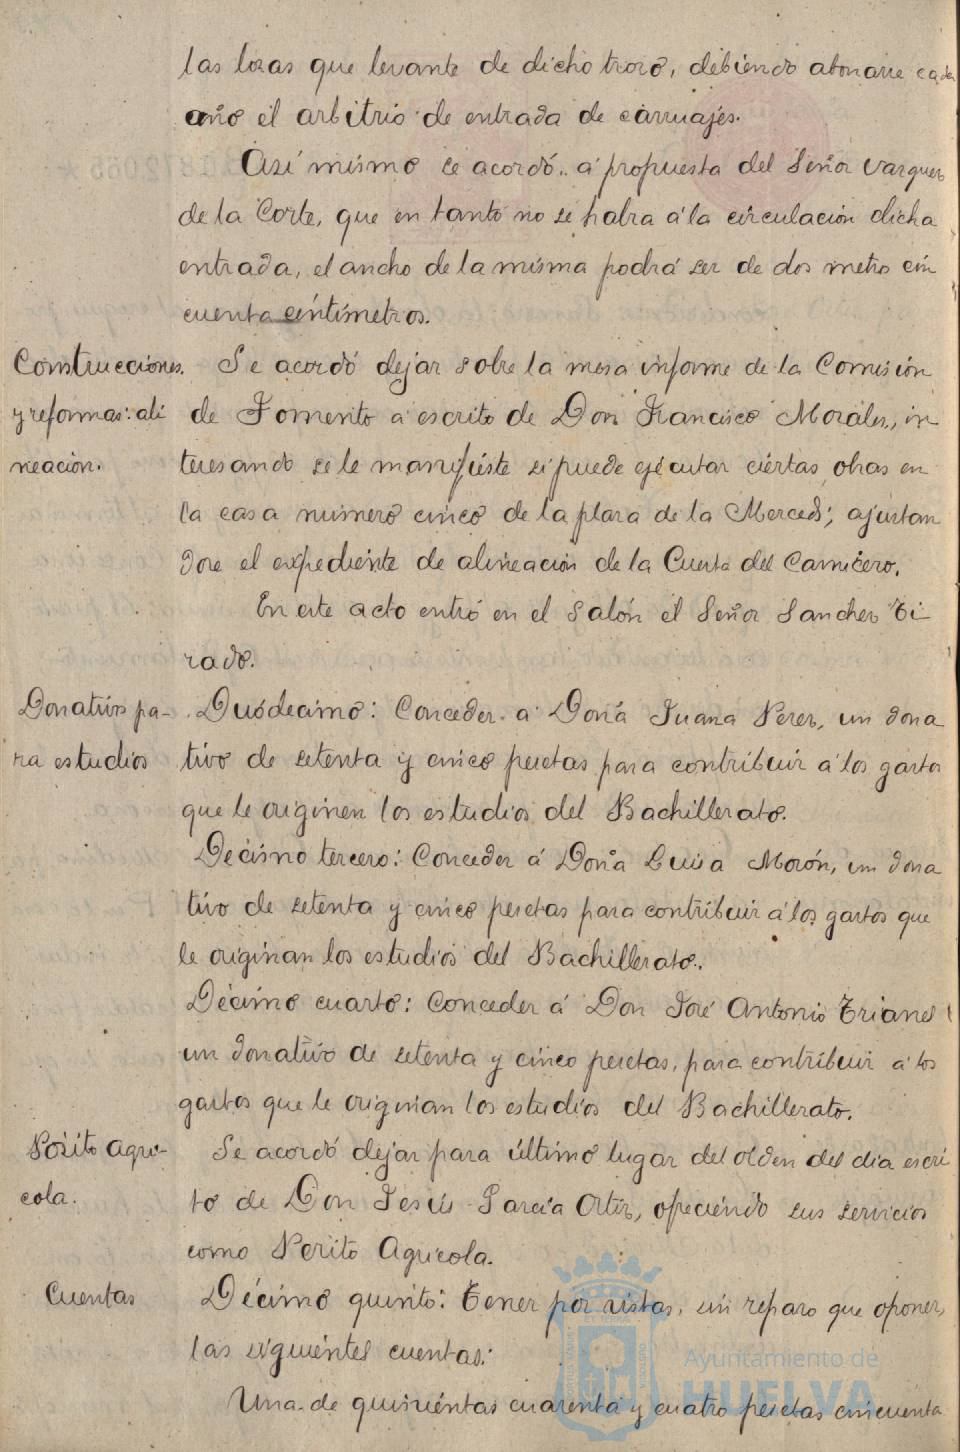 las lozas que levante de dicho trozo, debiendo abonarse cada
año el arbitrio de entrada de carruajes.
Así mismo se acordó, a propuesta del Señor Vazquez
de la Corte, que en tanto no se habra á la circulación dicha
entrada, el ancho de la misma podrá ser de dos metro cin
cuenta centímetros.
Construcciones Se acordó dejar sobre la mesa informe de la Comisión
y reformas: ali de Fomento a escrito de Don Francisco Morales, in
neación. teresando se le manifieste si puede ejecutar ciertas obras en
la casa número cinco de la plaza de la Merced; ajustan
dose el expediente de alineación de la Cuesta del Carnicero.
En este acto entró en el Salón el Señor Sanchez Ti
rado.
Donativos pa- Duódecimo: Conceder a Doña Juana Perez, un dona
ra estudios tivo de setenta y cinco pesetas para contribuir á los gastos
que le originen los estudios del Bachillerato.
Décimo tercero: Conceder á Doña Luisa Morón, un dona
tivo de setenta y cinco pesetas para contribuir á los gastos que
le originan los estudios del Bachillerato.
Décimo cuarto: Conceder á Don José Antonio Trianes
un donativo de setenta y cinco pesetas, para contribuir á los
gastos que le originan los estudios del Bachillerato.
Pósito Agrí- Se acordó dejar para último lugar del orden del dia escri
cola. to de Don Jesús Garcia Ortiz, ofreciendo sus servicios
como Perito Agricola.
Cuentas Décimo quinto: Tener por vistas, sin reparo que oponer,
las siguientes cuentas:
Una de quinientas cuarenta y cuatro pesetas cincuenta
Ayuntamiento de
HUELVA